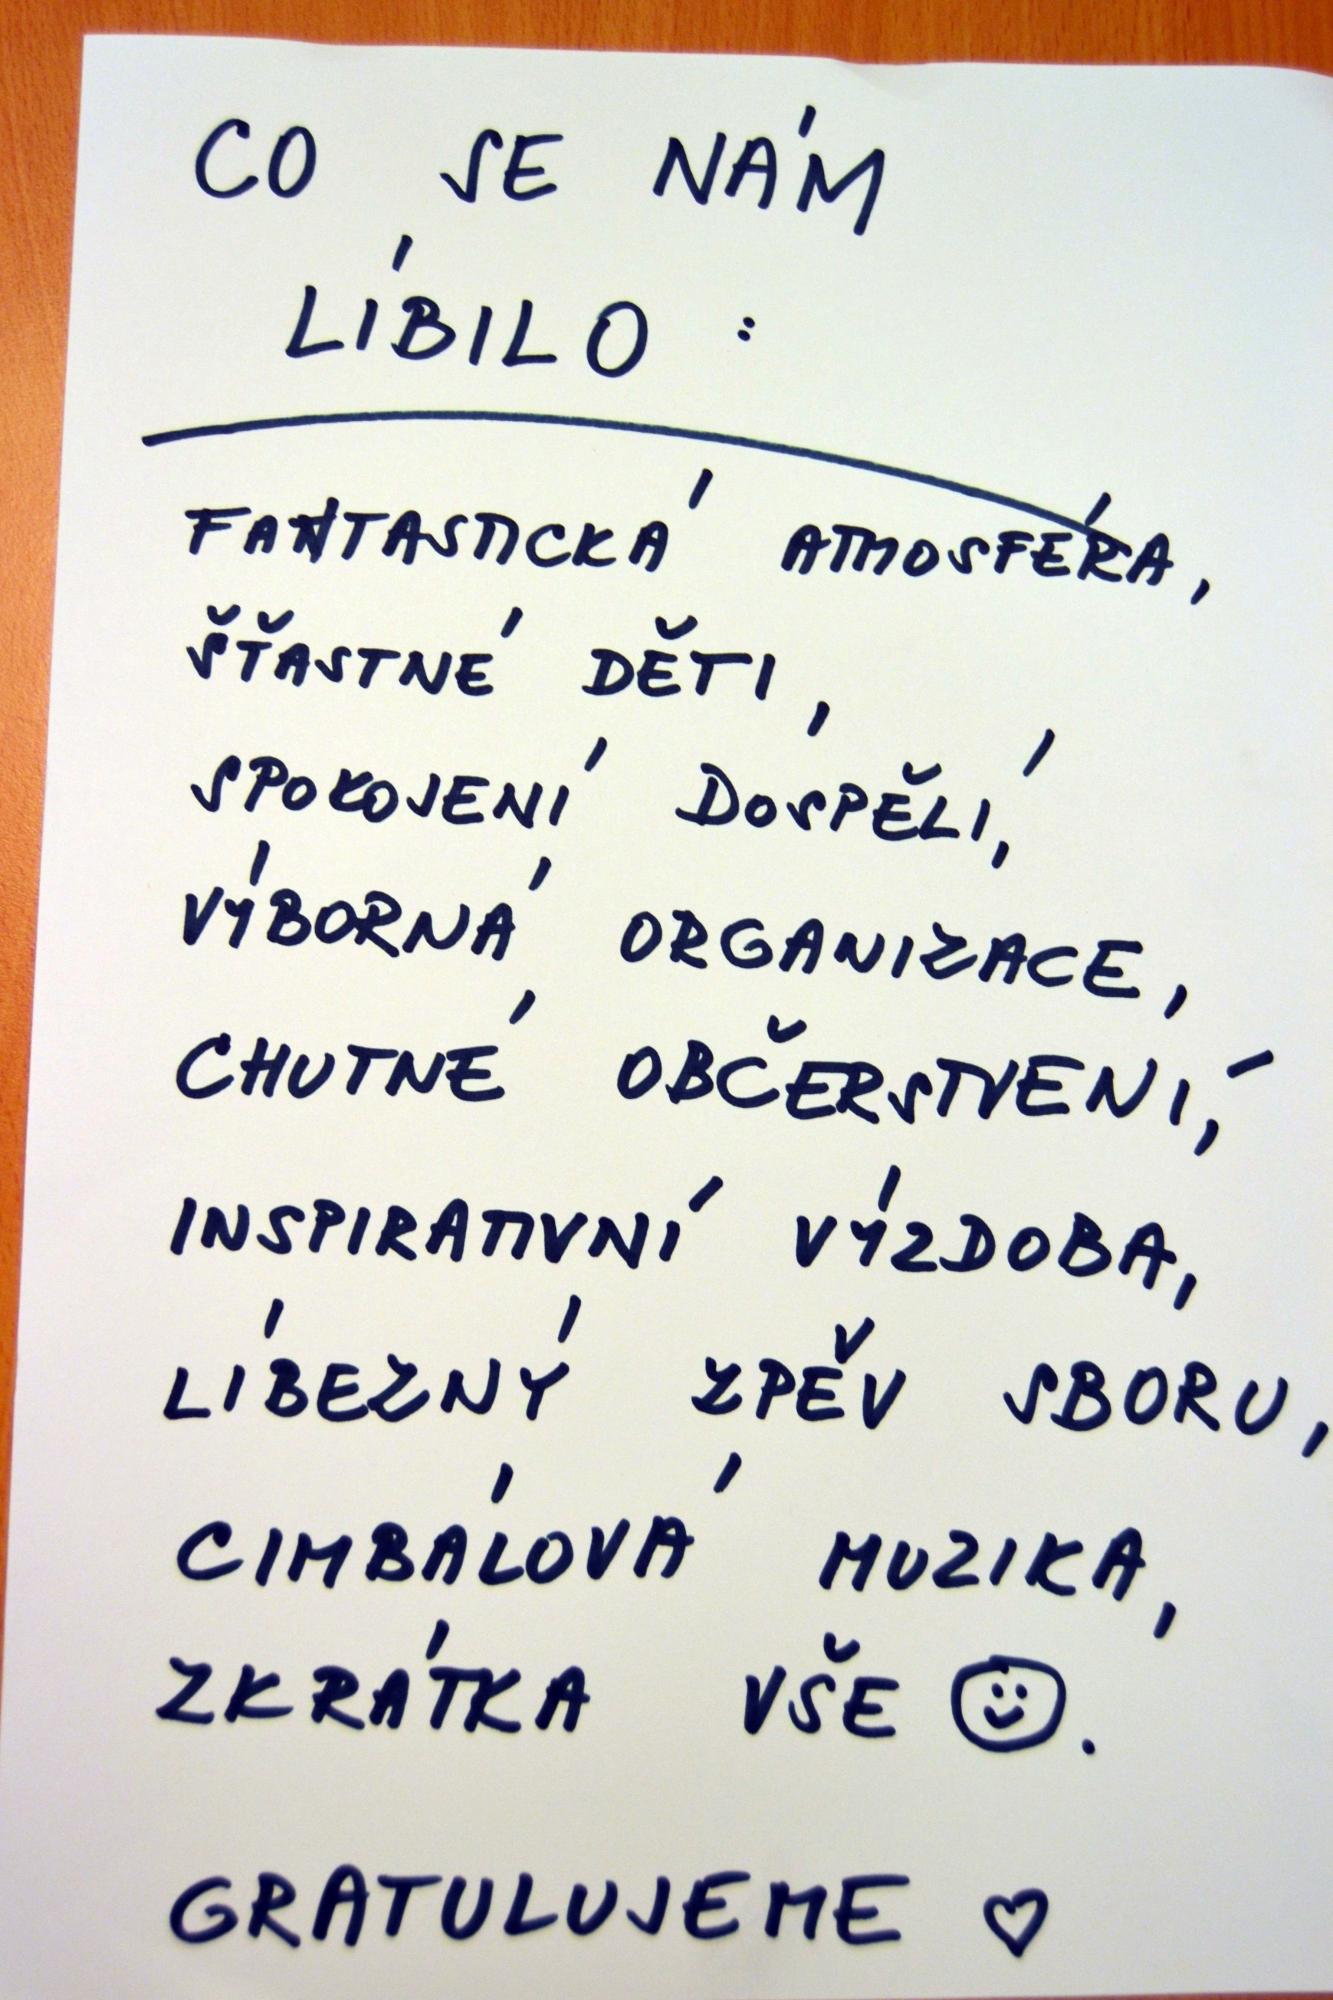 CO SE NÁM
LÍBILO :
FANTASTICKÁ ATMOSFÉRA,
ŠŤASTNÉ DĚTI,
SPOKOJENÍ DOSPĚLÍ,
VÝBORNÁ ORGANIZACE,
CHUTNÉ OBČERSTVENÍ,
INSPIRATIVNÍ VÝZDOBA,
LÍBEZNÝ ZPĚV SBORU,
CIMBÁLOVÁ MUZIKA,
ZKRÁTKA VŠE ☺.
GRATULUJEME ♡